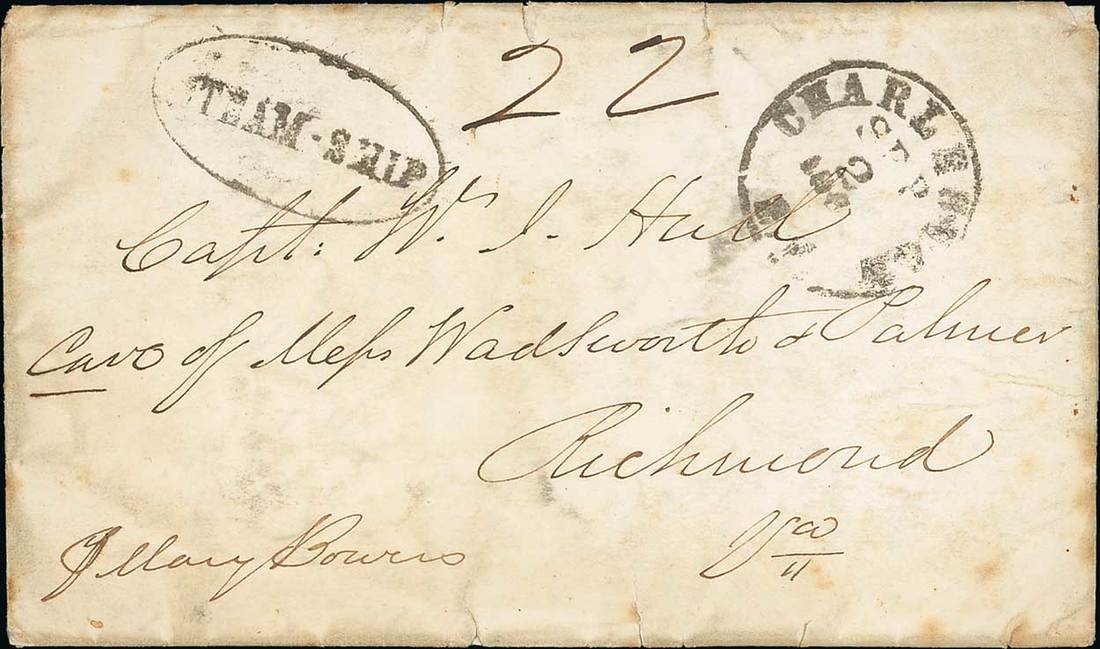 TEAM-SHIP
22
CHARLESTON
SEP
Capt: Wm. J. Hull
Care of Mess Wadsworth & Palmer
Richmond
Va
Mary Bowers